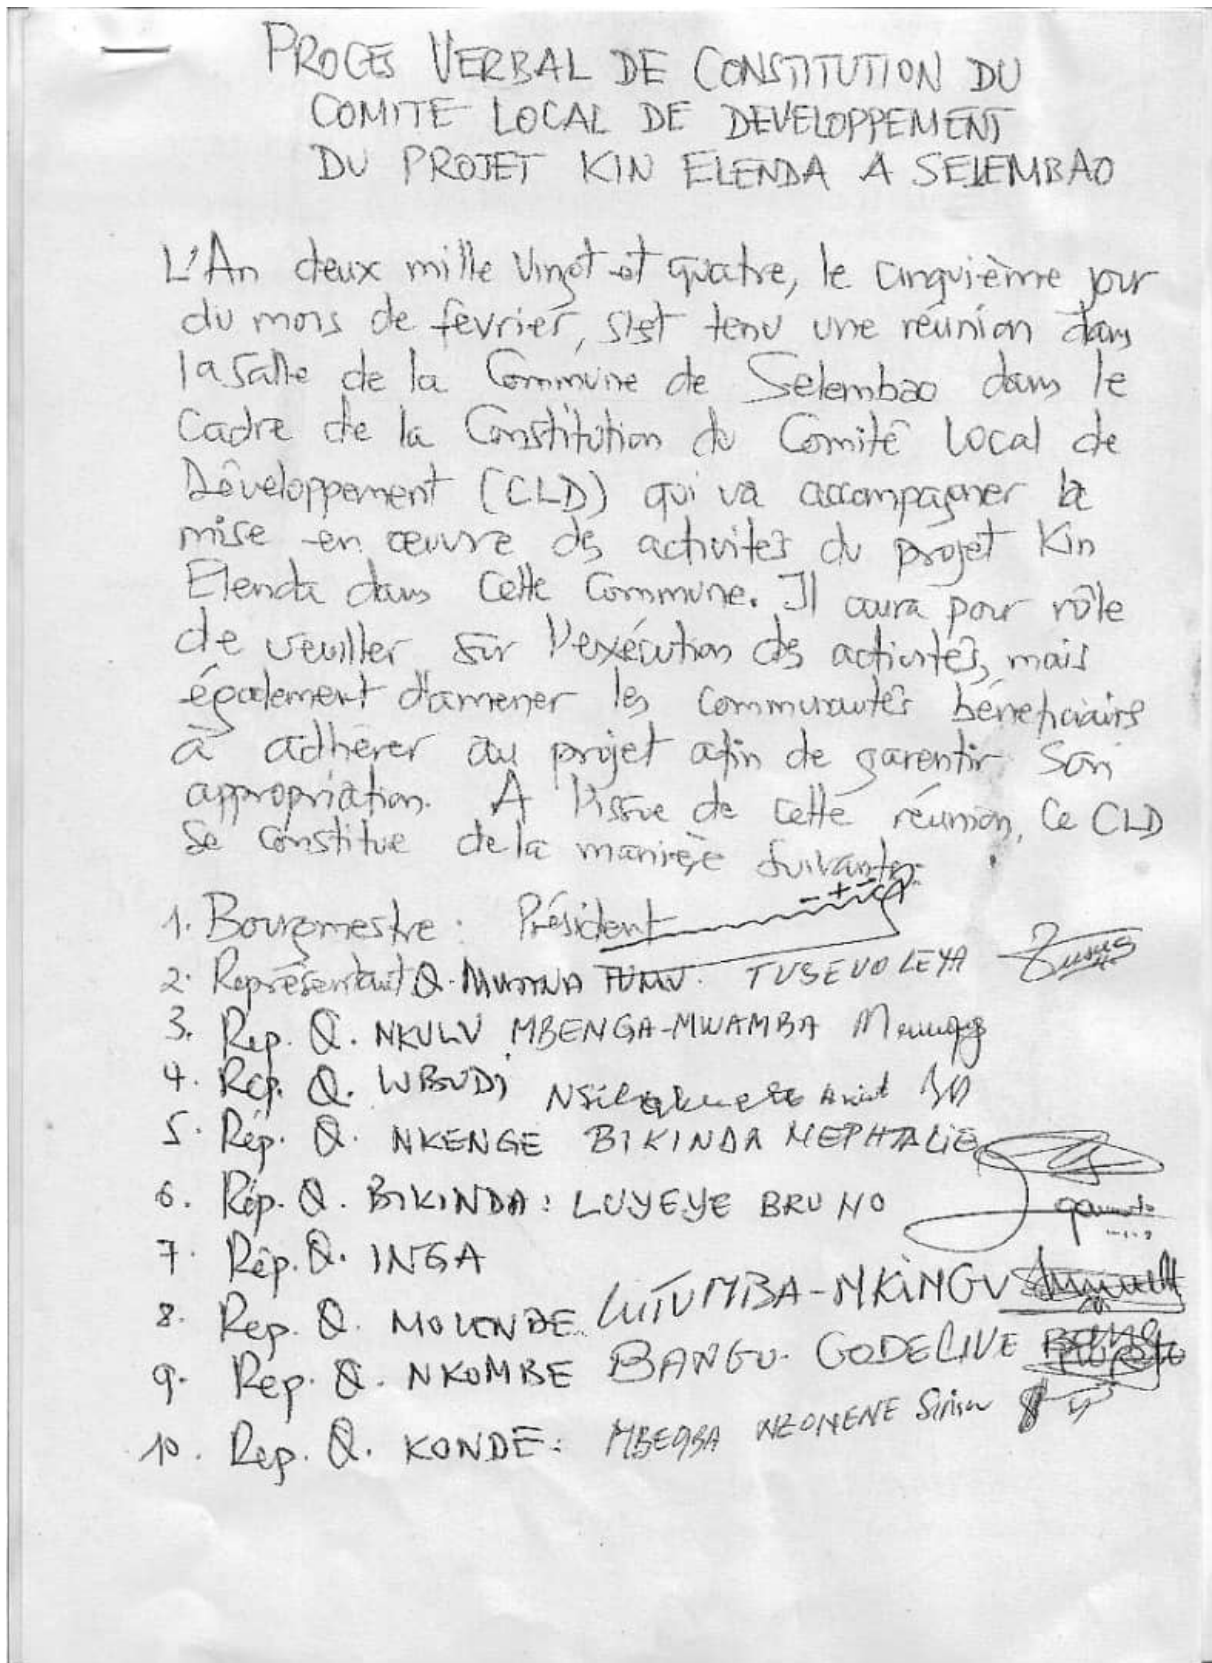 PROCES VERBAL DE CONSTITUTION DU
COMITE LOCAL DE DEVELOPPEMENT
DU PROJET KIN ELENDA A SELEMBAO
L'An deux mille vingt et quatre, le cinquième jour
du mois de fevrier, s'est tenu une réunion dans
la salle de la Commune de Selembao dans le
Cadre de la Constitution du Comité local de
Développement (CLD) qui va accompagner la
mise en œuvre des activités du projet Kin
Elenda dans cette Commune. Il aura pour rôle
de veuiller sur l'exécution des activités, mais
également d'amener les communautés bénéficiaires
à adhérer au projet afin de garentir son
appropriation. A l'issue de cette réunion, Ce CLD
se constitue de la manière suivante:
1. Bourgmestre : Président
2. Représentant Q. MWANA FUMU. TUSEVO LEYA
3. Rep. Q. NKULU MBENGA-MWAMBA
4. Rep. Q. LUBUDI
5. Rép. Q. NKENGE BIKINDA NEPHTALIE
6. Rép. Q. BIKINDA : LUYEYE BRUNO
7. Rép. Q. INGA
8. Rep. Q. MOLENDE LUTUMBA-NKINGU
9. Rep. Q. NKOMBE BANGU. GODELIVE
10. Rep. Q. KONDE :